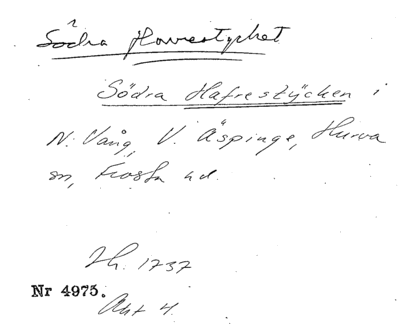 Södra Havrestycket
Södra Hafrestycken i
N. Vång, V. Äspinge, Hurva
sn, Frosta hd.
Jh. 1737
Nr 4975.
Akt 4.